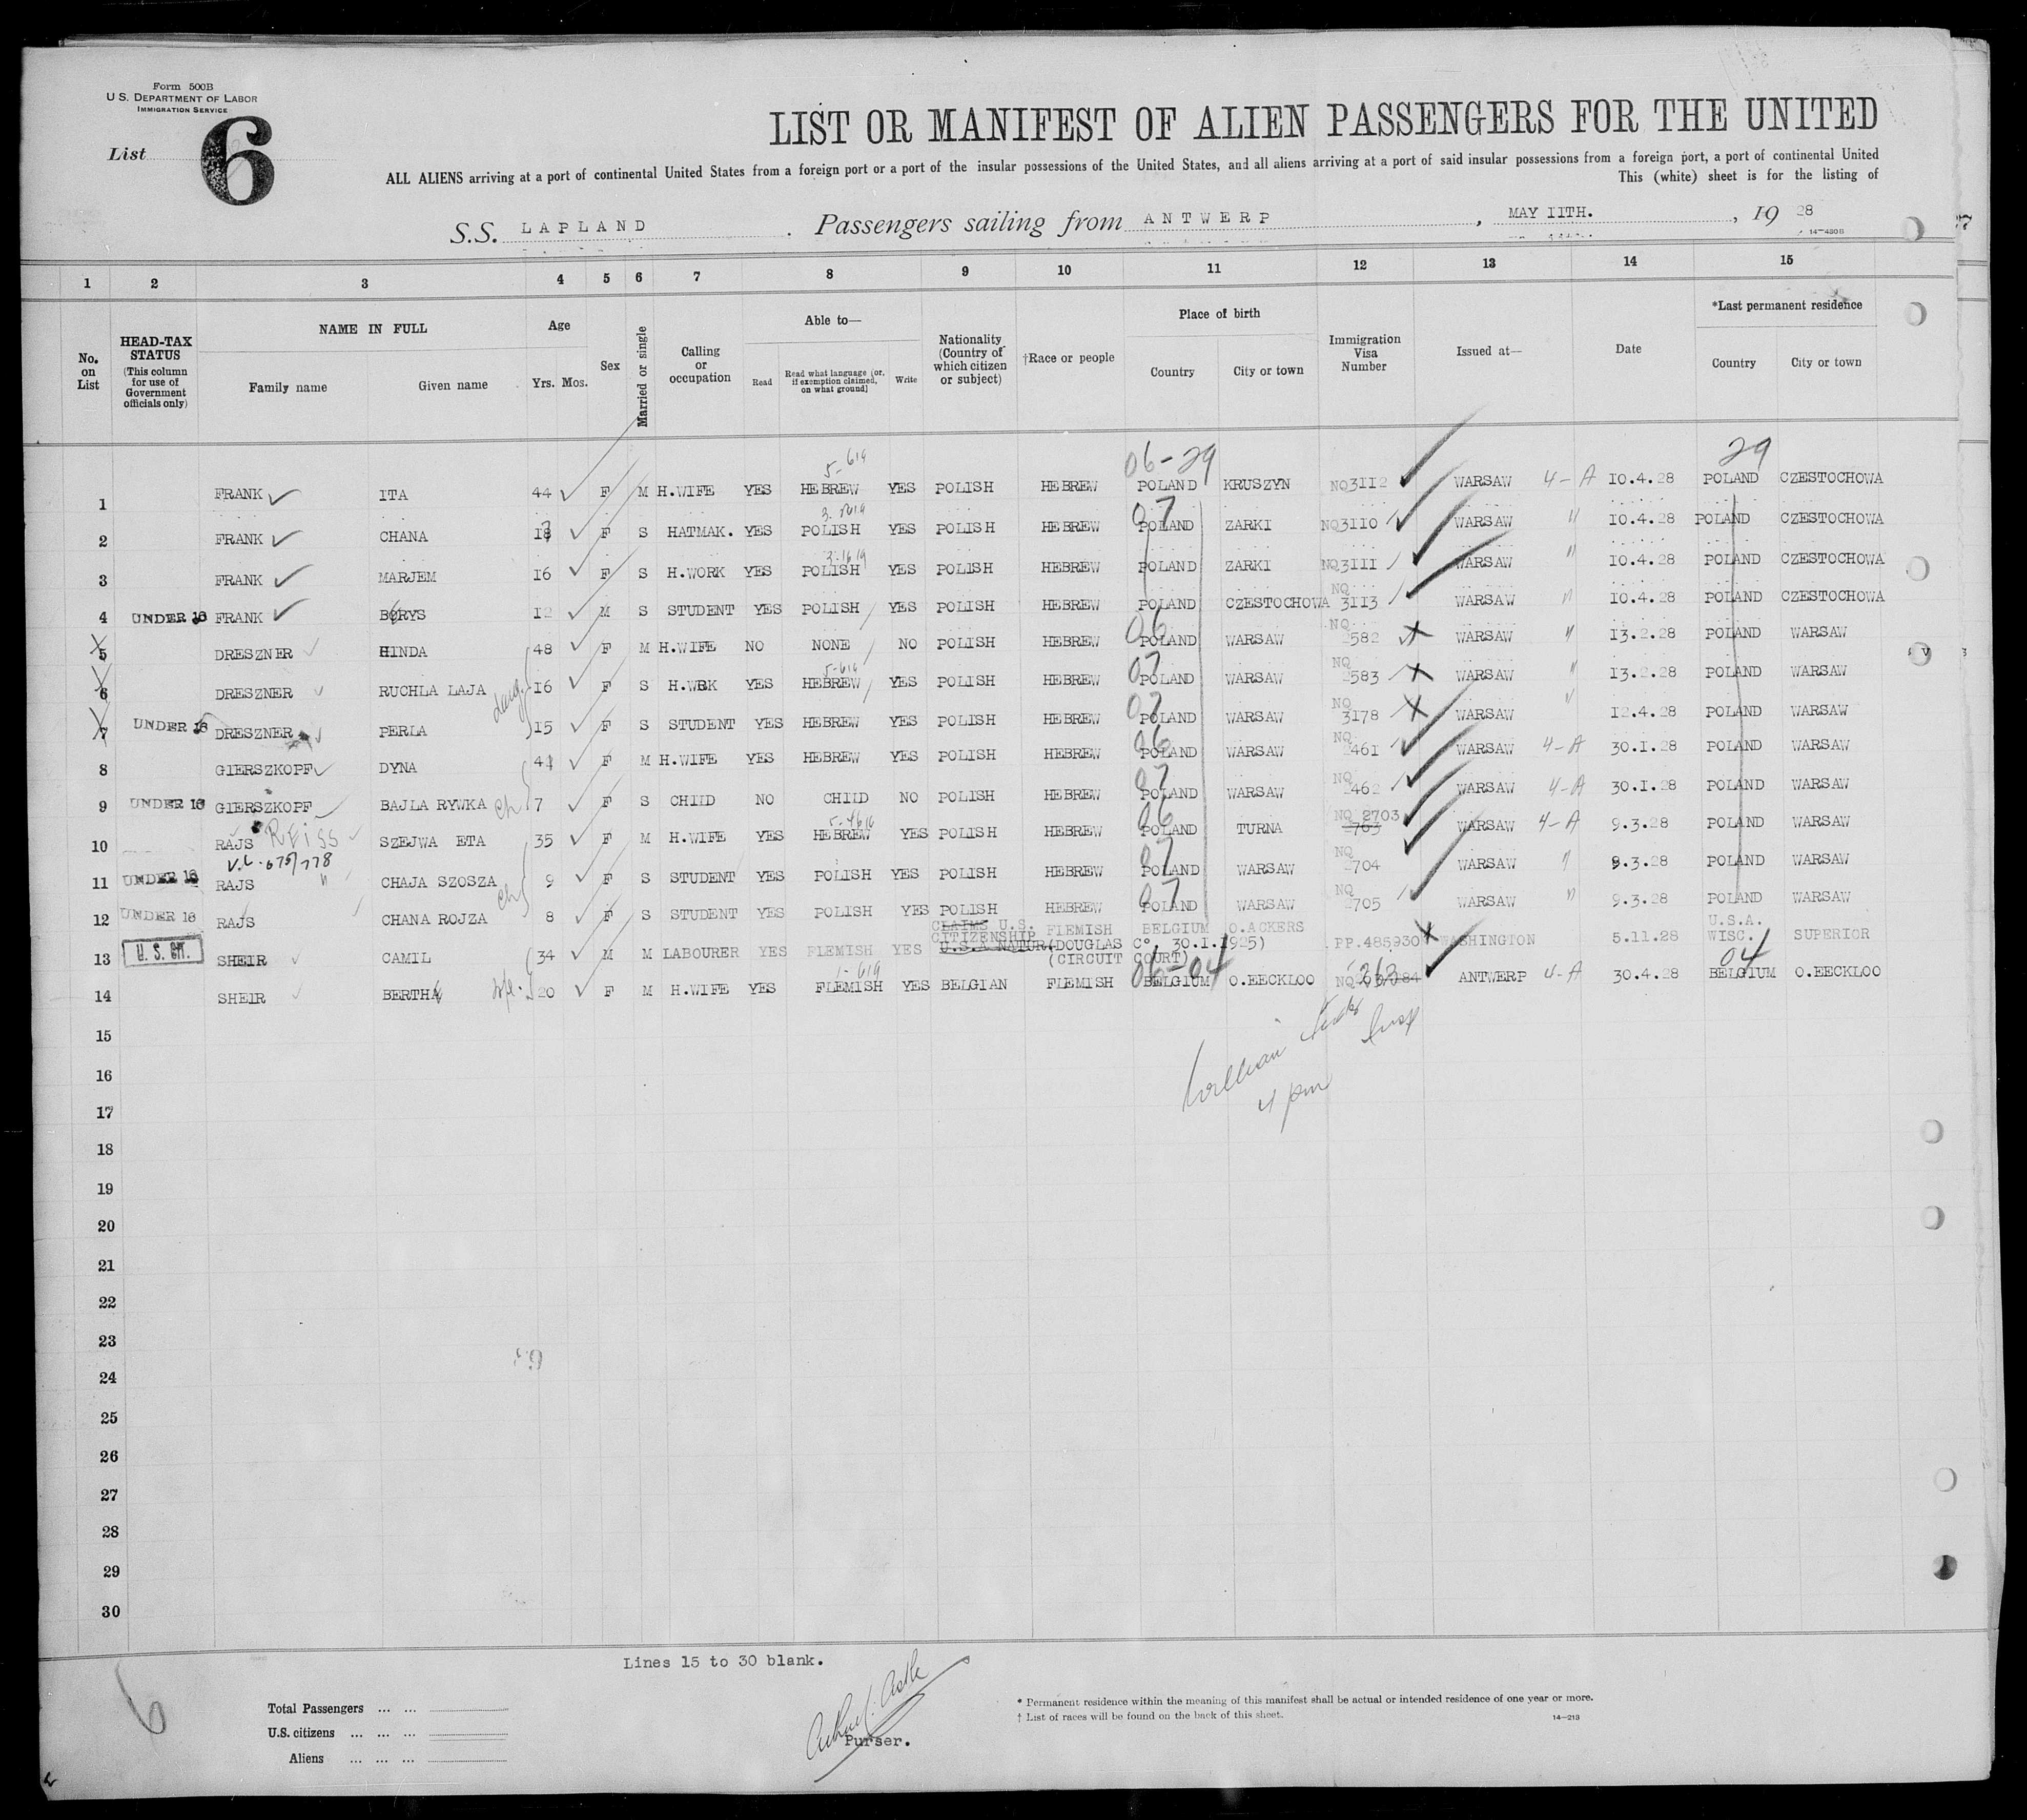 Form 500B
U.S. DEPARTMENT OF LABOR
IMMIGRATION SERVICE
List 6
LIST OR MANIFEST OF ALIEN PASSENGERS FOR THE UNITED
ALL ALIENS arriving at a port of continental United States from a foreign port or a port of the insular possessions of the United States, and all aliens arriving at a port of said insular possessions from a foreign port, a port of continental United
This (white) sheet is for the listing of
S.S. LAPLAND . Passengers sailing from ANTWERP , MAY IITH. , 19 28
14-430B
1 2 3 4 5 6 7 8 9 10 11 12 13 14 15
No. on List
HEAD-TAX STATUS (This column for use of Government officials only)
NAME IN FULL
Family name Given name
Age
Yrs. Mos.
Sex
Married or single
Calling or occupation
Able to—
Read Read what language [or, if exemption claimed, on what ground] Write
Nationality (Country of which citizen or subject)
†Race or people
Place of birth
Country City or town
Immigration Visa Number
Issued at—
Date
*Last permanent residence
Country City or town
5-619 06-29 29
1 FRANK ITA 44 F M H.WIFE YES HEBREW YES POLISH HEBREW POLAND KRUSZYN NQ3112 WARSAW 4-A 10.4.28 POLAND CZESTOCHOWA
07
2 FRANK CHANA F S HATMAK. YES POLISH YES POLISH HEBREW POLAND ZARKI NQ3110 WARSAW " 10.4.28 POLAND CZESTOCHOWA
3 FRANK MARJEM 16 F S H.WORK YES POLISH YES POLISH HEBREW POLAND ZARKI NQ3111 WARSAW " 10.4.28 POLAND CZESTOCHOWA
4 UNDER 16 FRANK BORYS 12 M S STUDENT YES POLISH YES POLISH HEBREW POLAND CZESTOCHOWA NQ 3113 WARSAW " 10.4.28 POLAND CZESTOCHOWA
06
5 DRESZNER HINDA 48 F M H.WIFE NO NONE NO POLISH HEBREW POLAND WARSAW NQ 2582 WARSAW " 13.2.28 POLAND WARSAW
5-619 07
6 DRESZNER RUCHLA LAJA 16 F S H.WRK YES HEBREW YES POLISH HEBREW POLAND WARSAW NQ 2583 WARSAW " 13.2.28 POLAND WARSAW
07
7 UNDER 16 DRESZNER PERLA 15 F S STUDENT YES HEBREW YES POLISH HEBREW POLAND WARSAW NQ 3178 WARSAW " 12.4.28 POLAND WARSAW
06
8 GIERSZKOPF DYNA 44 F M H.WIFE YES HEBREW YES POLISH HEBREW POLAND WARSAW NQ 2461 WARSAW 4-A 30.1.28 POLAND WARSAW
07
9 UNDER 16 GIERSZKOPF BAJLA RYWKA ch 7 F S CHILD NO CHILD NO POLISH HEBREW POLAND WARSAW NQ 2462 WARSAW 4-A 30.1.28 POLAND WARSAW
06
10 RAJS REISS SZEJWA ETA 35 F M H.WIFE YES HEBREW YES POLISH HEBREW POLAND TURNA NQ 2703 2763 WARSAW 4-A 9.3.28 POLAND WARSAW
07
11 UNDER 16 RAJS " CHAJA SZOSZA 9 F S STUDENT YES POLISH YES POLISH HEBREW POLAND WARSAW NQ 2704 WARSAW " 9.3.28 POLAND WARSAW
ch 07
12 UNDER 16 RAJS CHANA ROJZA 8 F S STUDENT YES POLISH YES POLISH HEBREW POLAND WARSAW NQ 2705 WARSAW " 9.3.28 POLAND WARSAW
CLAIMS U.S. CITIZENSHIP
13 U.S. CIT. SHEIR CAMIL 34 M M LABOURER YES FLEMISH YES U.S.A NATUR(DOUGLAS C°, 30.I.1925) FLEMISH BELGIUM O.ACKERS PP.485930 WASHINGTON 5.11.28 U.S.A. WISC. SUPERIOR
(CIRCUIT COURT)
1-619 06-04 04
14 SHEIR BERTHA 20 F M H.WIFE YES FLEMISH YES BELGIAN FLEMISH BELGIUM O.EECKLOO NQ ANTWERP 4-A 30.4.28 BELGIUM O.EECKLOO
15
William
4 pm
16
17
18
19
20
21
22
23
24
25
26
27
28
29
30
Lines 15 to 30 blank.
6
Total Passengers ... ...
U.S. citizens ... ... ...
Aliens ... ... ...
Purser.
* Permanent residence within the meaning of this manifest shall be actual or intended residence of one year or more.
† List of races will be found on the back of this sheet.
14-213